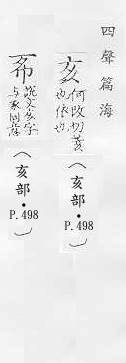 四聲篇海
亥
何改切荄
也依也
（亥部·P.498）
說文亥字
与豕同意
（亥部·P.498）